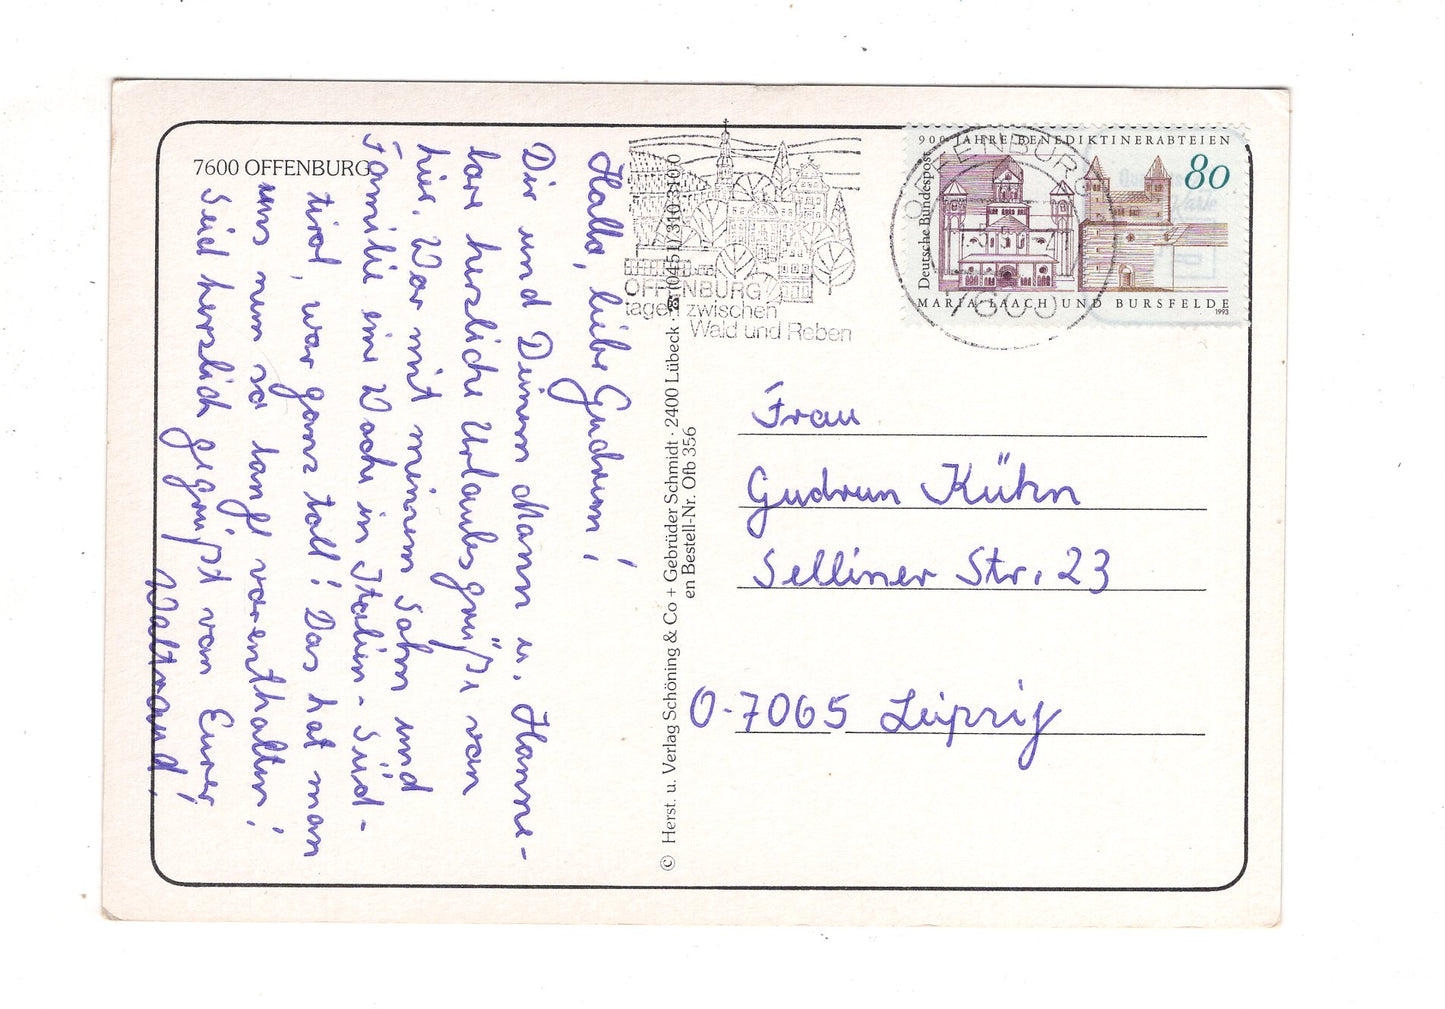 7600 OFFENBURG
Hallo, liebe Gudrun!
Dir und Deinem Mann u. Hanne-
lore herzliche Urlaubsgrüße von
hier. War mit meinem Sohn und
Familie eine Woche in Italien - Süd-
tirol, war ganz toll! Das hat man
uns nun so lange vorenthalten!
Seid herzlich gegrüßt von Eurer
Waltraud!
© Herst. u. Verlag Schöning & Co + Gebrüder Schmidt · 2400 Lübeck · ☎ (0451) 310 310 0
en Bestell-Nr. Ofb 356
OFFENBURG
tagen zwischen
Wald und Reben
OFFENBURG
7600
900 JAHRE BENEDIKTINERABTEIEN
80
Deutsche Bundespost
MARIA LAACH UND BURSFELDE
1993
Frau
Gudrun Kühn
Selliner Str. 23
O-7065 Leipzig